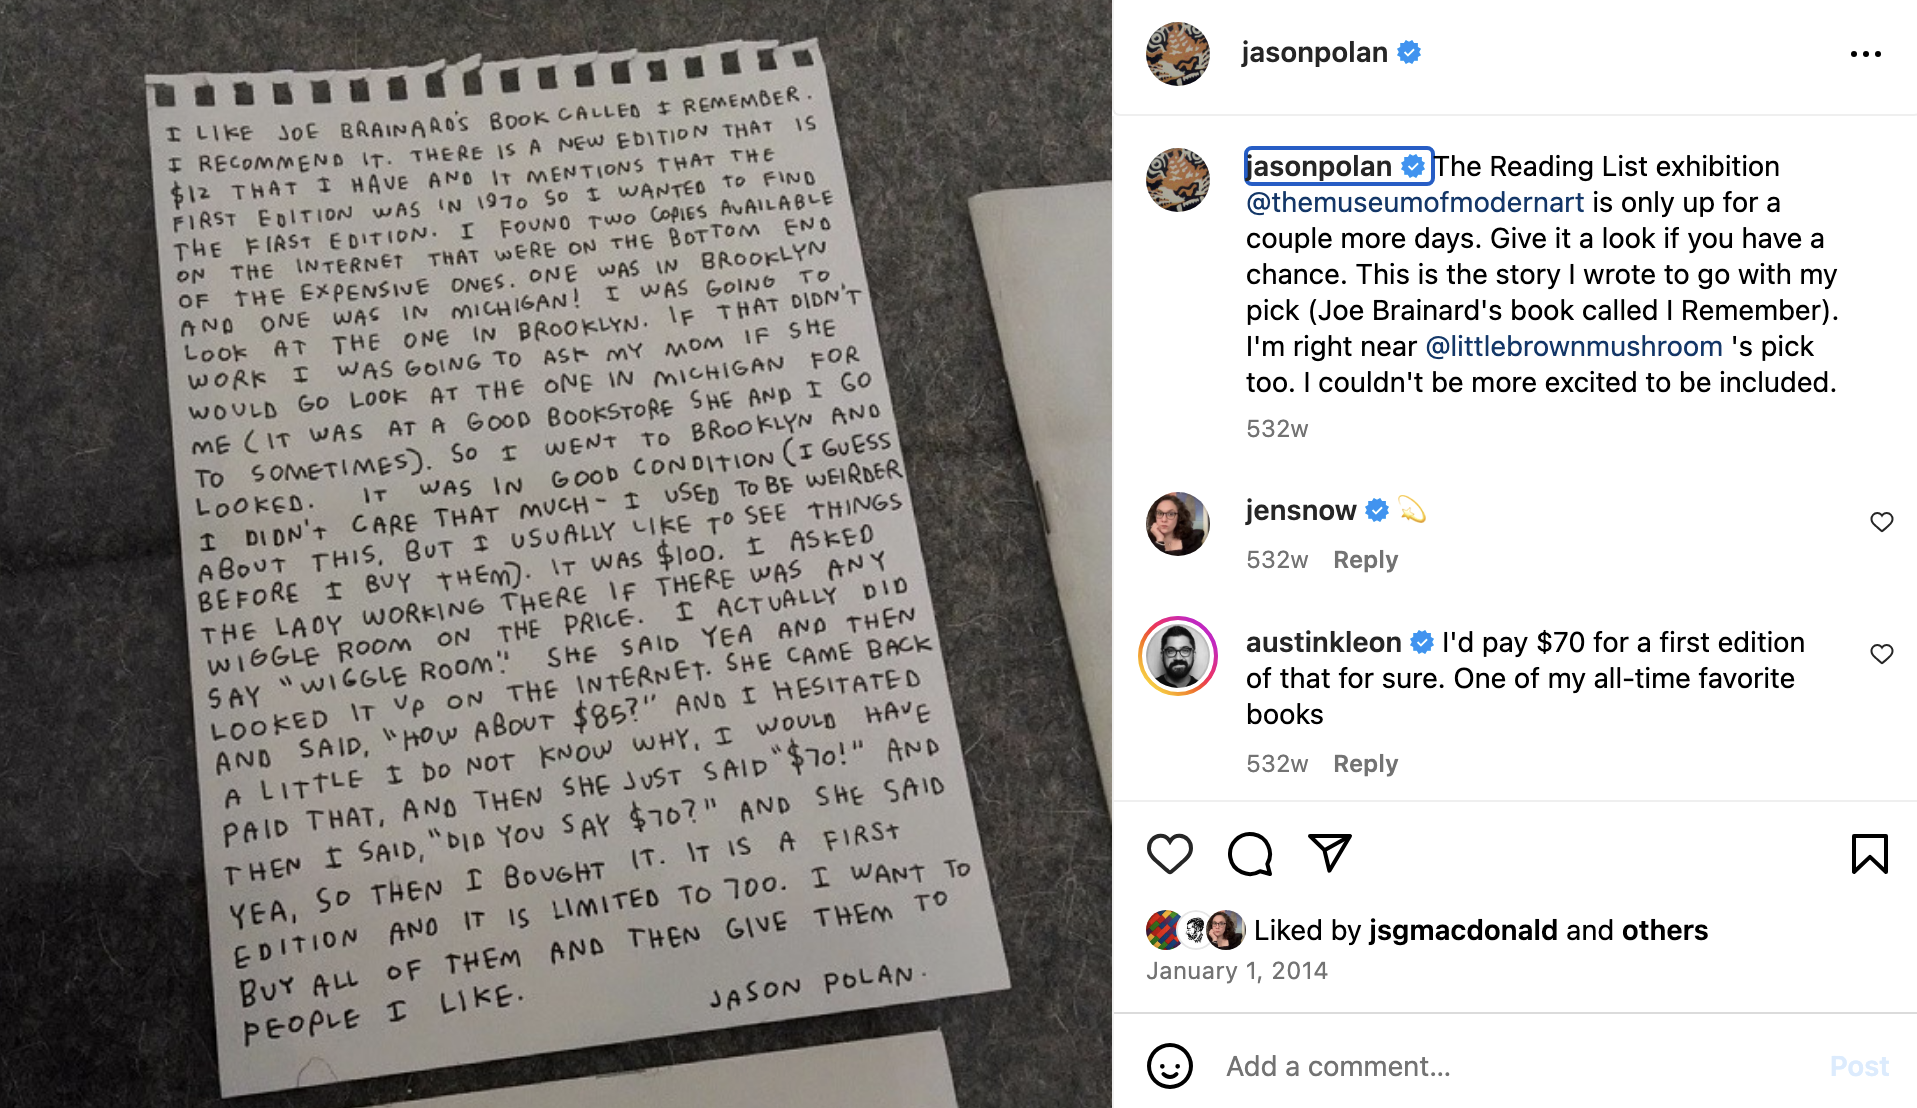 I LIKE JOE BRAINARD'S BOOK CALLED I REMEMBER.
I RECOMMEND IT. THERE IS A NEW EDITION THAT IS
$12 THAT I HAVE AND IT MENTIONS THAT THE
FIRST EDITION WAS IN 1970 SO I WANTED TO FIND
THE FIRST EDITION. I FOUND TWO COPIES AVAILABLE
ON THE INTERNET THAT WERE ON THE BOTTOM END
OF THE EXPENSIVE ONES. ONE WAS IN BROOKLYN
AND ONE WAS IN MICHIGAN! I WAS GOING TO
LOOK AT THE ONE IN BROOKLYN. IF THAT DIDN'T
WORK I WAS GOING TO ASK MY MOM IF SHE
WOULD GO LOOK AT THE ONE IN MICHIGAN FOR
ME (IT WAS AT A GOOD BOOKSTORE SHE AND I GO
TO SOMETIMES). SO I WENT TO BROOKLYN AND
LOOKED. IT WAS IN GOOD CONDITION (I GUESS
I DIDN'T CARE THAT MUCH - I USED TO BE WEIRDER
ABOUT THIS, BUT I USUALLY LIKE TO SEE THINGS
BEFORE I BUY THEM). IT WAS $100. I ASKED
THE LADY WORKING THERE IF THERE WAS ANY
WIGGLE ROOM ON THE PRICE. I ACTUALLY DID
SAY "WIGGLE ROOM". SHE SAID YEA AND THEN
LOOKED IT UP ON THE INTERNET. SHE CAME BACK
AND SAID, "HOW ABOUT $85?" AND I HESITATED
A LITTLE I DO NOT KNOW WHY, I WOULD HAVE
PAID THAT, AND THEN SHE JUST SAID "$70!" AND
THEN I SAID, "DID YOU SAY $70?" AND SHE SAID
YEA, SO THEN I BOUGHT IT. IT IS A FIRST
EDITION AND IT IS LIMITED TO 700. I WANT TO
BUY ALL OF THEM AND THEN GIVE THEM TO
PEOPLE I LIKE.
JASON POLAN.
jasonpolan
jasonpolan The Reading List exhibition
@themuseumofmodernart is only up for a
couple more days. Give it a look if you have a
chance. This is the story I wrote to go with my
pick (Joe Brainard's book called I Remember).
I'm right near @littlebrownmushroom 's pick
too. I couldn't be more excited to be included.
532w
jensnow 💫
532w Reply
austinkleon I'd pay $70 for a first edition
of that for sure. One of my all-time favorite
books
532w Reply
Liked by jsgmacdonald and others
January 1, 2014
Add a comment...
Post